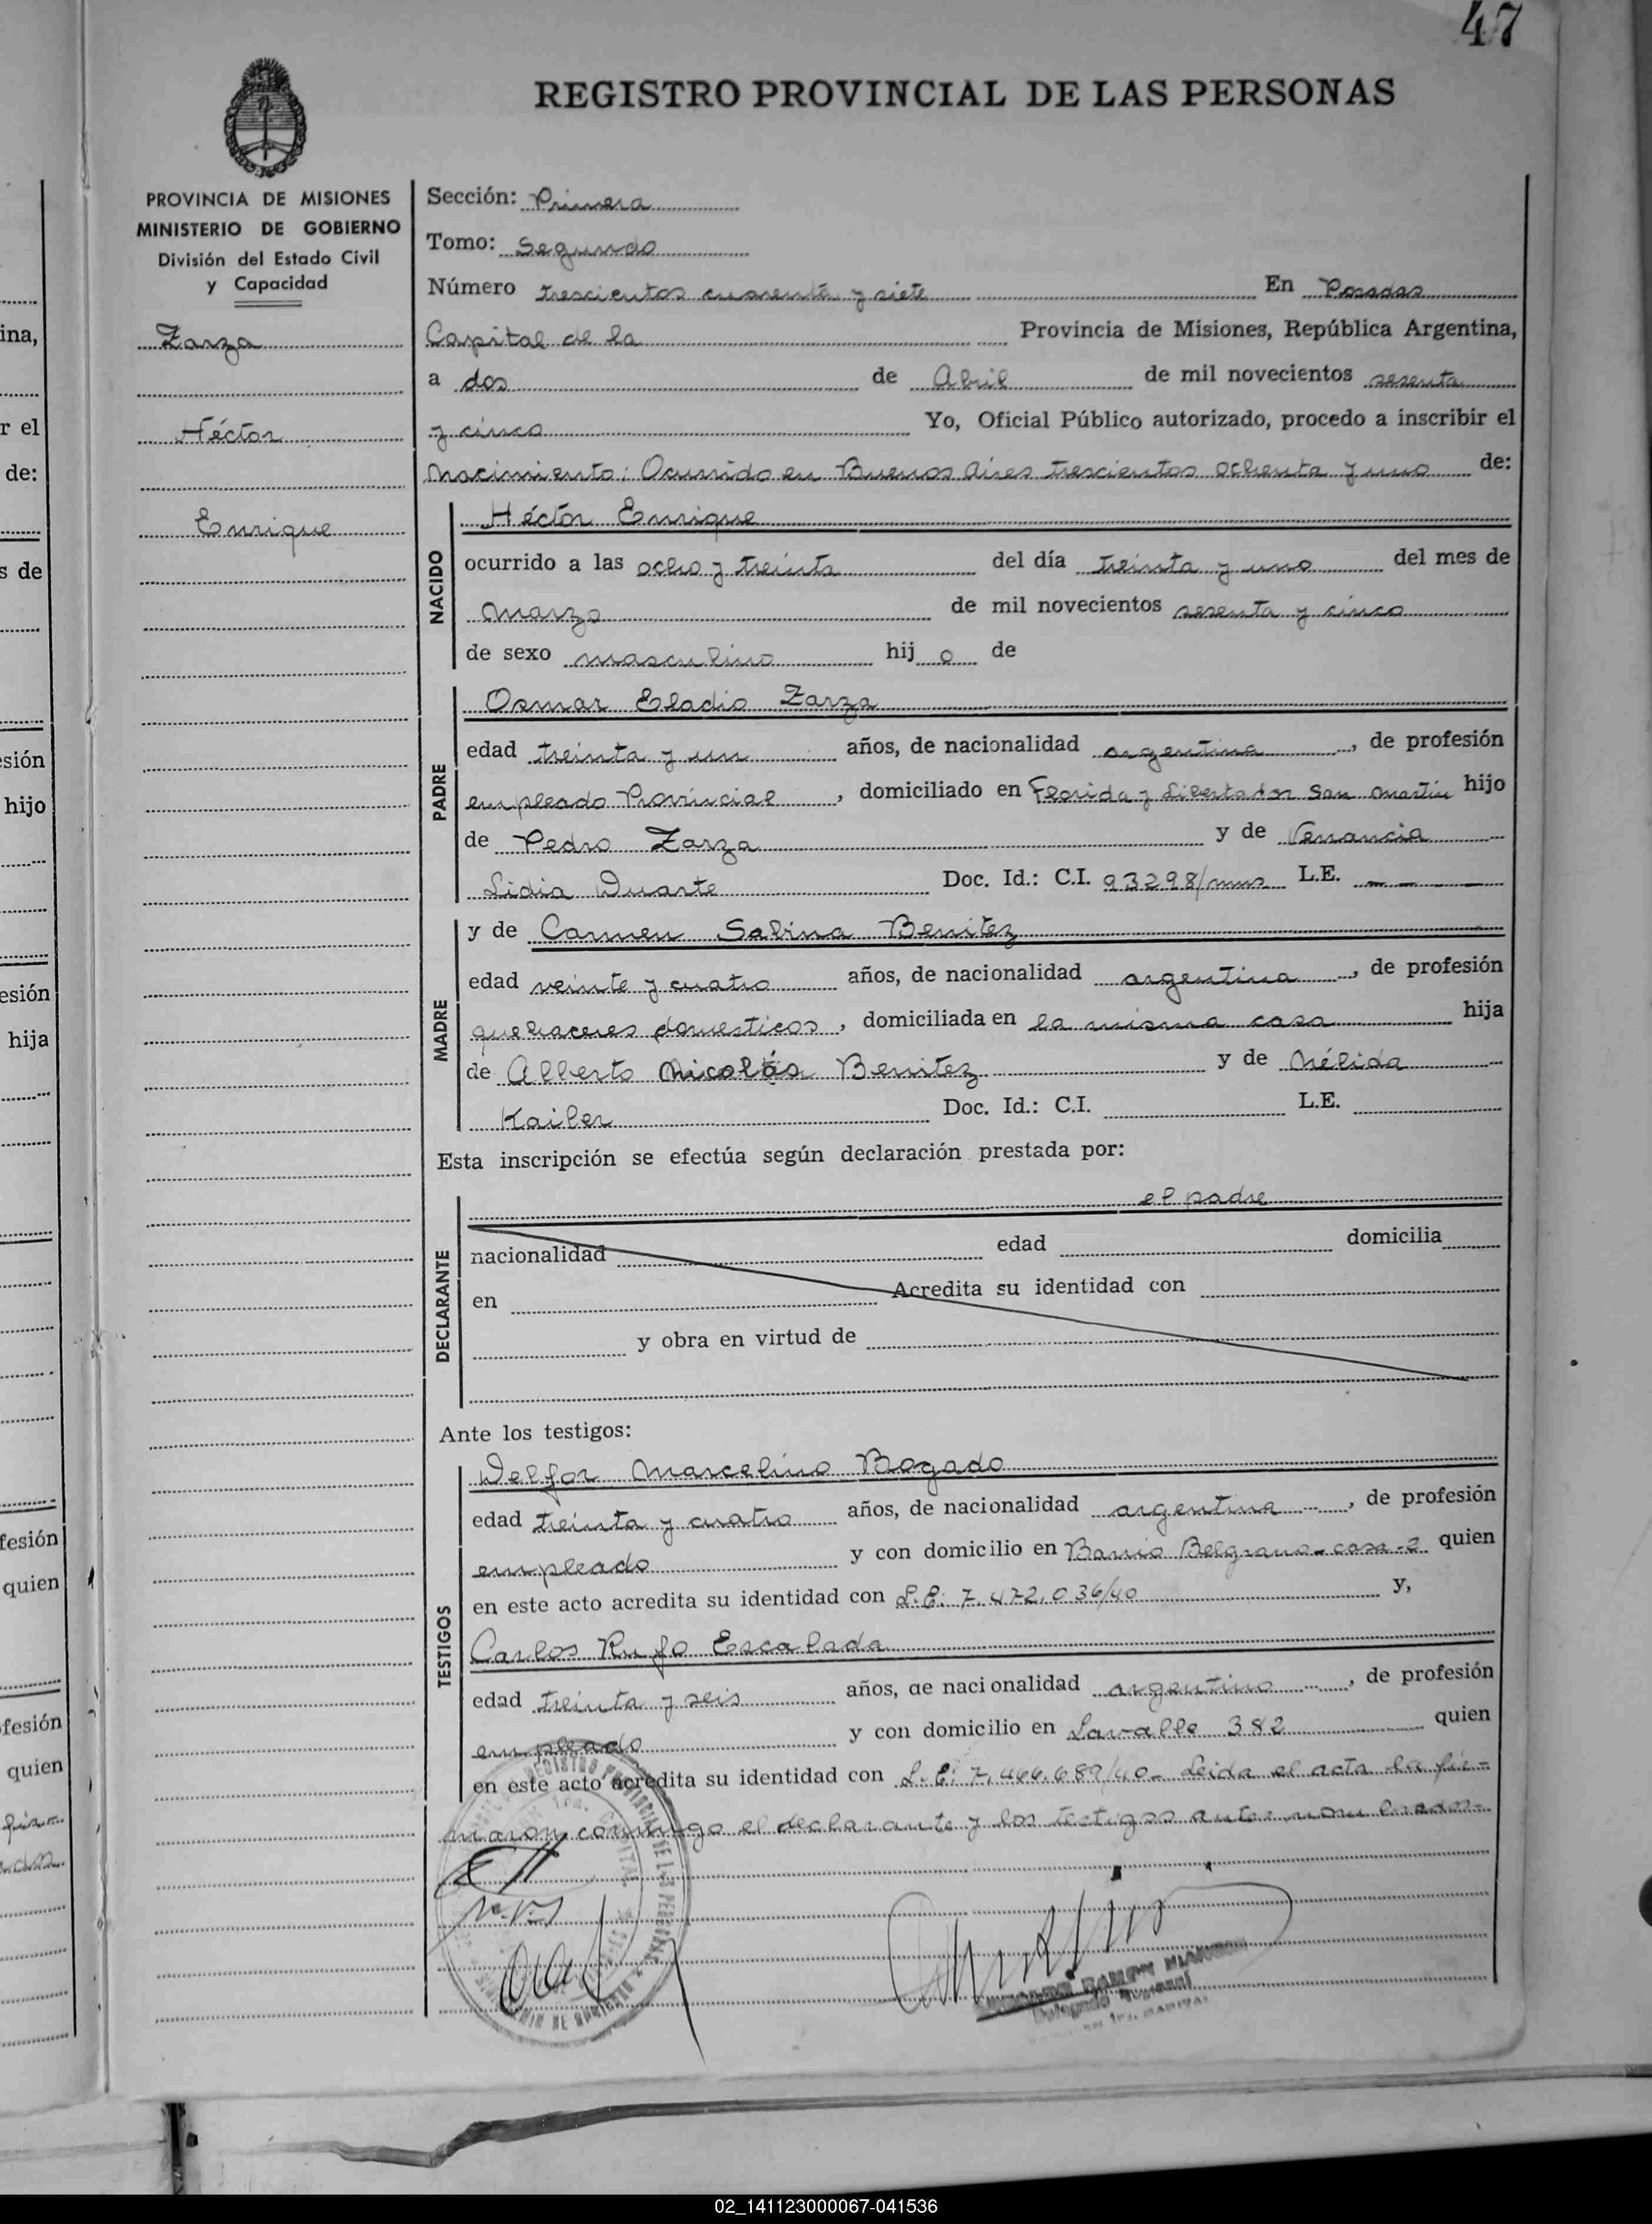 47
REGISTRO PROVINCIAL DE LAS PERSONAS
PROVINCIA DE MISIONES
MINISTERIO DE GOBIERNO
División del Estado Civil
y Capacidad
Zarza
Héctor
Enrique
Sección: Primera
Tomo: Segundo
Número trescientos cuarenta y siete En Posadas
Capital de la Provincia de Misiones, República Argentina,
a dos de Abril de mil novecientos sesenta
y cinco Yo, Oficial Público autorizado, procedo a inscribir el
Nacimiento: Ocurrido en Buenos Aires trescientos ochenta y uno de:
NACIDO
Héctor Enrique
ocurrido a las ocho y treinta del día treinta y uno del mes de
Marzo de mil novecientos sesenta y cinco
de sexo masculino hij o de
PADRE
Osmar Eladio Zarza
edad treinta y un años, de nacionalidad argentina, de profesión
empleado Provincial, domiciliado en Florida y Libertador San Martín hijo
de Pedro Zarza y de Venancia
Lidia Duarte Doc. Id.: C.I. 93298/mnes L.E. — — —
MADRE
y de Carmen Sabina Benitez
edad veinte y cuatro años, de nacionalidad argentina, de profesión
quehaceres domesticos, domiciliada en la misma casa hija
de Alberto Nicolás Benitez y de Nélida
Kailer Doc. Id.: C.I. L.E.
Esta inscripción se efectúa según declaración prestada por:
DECLARANTE
el padre
nacionalidad edad domicilia
en Acredita su identidad con
y obra en virtud de
Ante los testigos:
TESTIGOS
Delfor Marcelino Bogado
edad treinta y cuatro años, de nacionalidad argentina, de profesión
empleado y con domicilio en Barrio Belgrano-casa-2 quien
en este acto acredita su identidad con L.E: 7.472.036/40 y,
Carlos Rufo Escalada
edad treinta y seis años, de nacionalidad argentino, de profesión
empleado y con domicilio en Lavalle 382 quien
en este acto acredita su identidad con L.E: 7.466.689/40- Leida el acta la fir-
maron conmigo el declarante y los testigos antes nombrados-
02_141123000067-041536